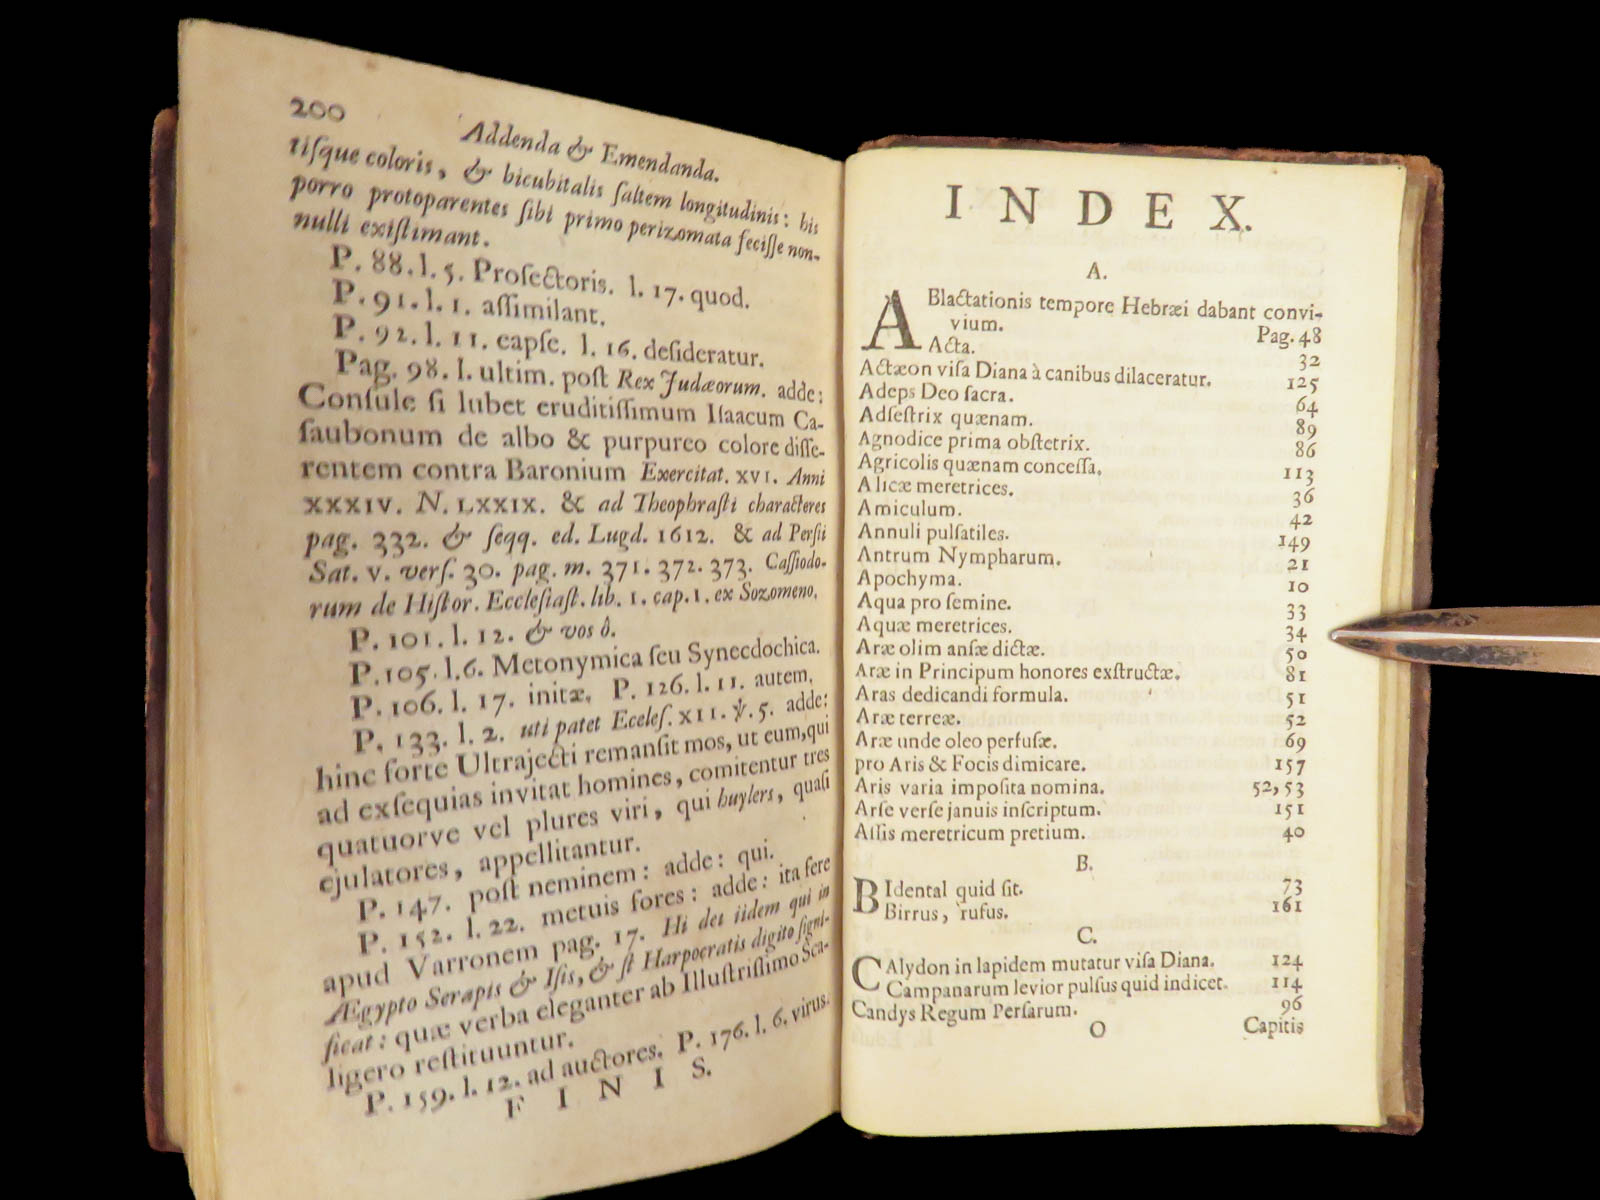 200
Addenda & Emendanda.
tiſque coloris, & bicubitalis ſaltem longitudinis: his
porro protoparentes ſibi primo perizomata feciſſe non-
nulli exiſtimant.
P. 88. l. 5. Proſectoris. l. 17. quod.
P. 91. l. 1. aſſimilant.
P. 92. l. 11. eapſe. l. 16. deſideratur.
Pag. 98. l. ultim. poſt Rex Judæorum. adde:
Conſule ſi lubet eruditiſſimum Iſaacum Ca-
ſaubonum de albo & purpureo colore diſſe-
rentem contra Baronium Exercitat. XVI. Anni
XXXIV. N. LXXIX. & ad Theophraſti characteres
pag. 332. & ſeqq. ed. Lugd. 1612. & ad Perſii
Sat. V. verſ. 30. pag. m. 371. 372. 373. Caſſiodo-
rum de Hiſtor. Eccleſiaſt. lib. 1. cap. 1. ex Sozomeno.
P. 101. l. 12. & vos ô.
P. 105. l. 6. Metonymica ſeu Synecdochica.
P. 106. l. 17. initæ. P. 126. l. 11. autem.
P. 133. l. 2. uti patet Eccleſ. XII. ℣. 5. adde:
hinc forte Ultrajecti remanſit mos, ut eum, qui
ad exſequias invitat homines, comitentur tres
quatuorve vel plures viri, qui huylers, quaſi
ejulatores, appellitantur.
P. 147. poſt neminem: adde: qui.
P. 152. l. 22. metuis fores: adde: ita fere
apud Varronem pag. 17. Hi dei iidem qui in
Ægypto Serapis & Iſis, & ſt Harpocratis digito ſigni-
ficat: quæ verba eleganter ab Illuſtriſſimo Sca-
ligero reſtituuntur.
P. 159. l. 12. ad auctores. P. 176. l. 6. virus.
FINIS.
INDEX.
A.
ABlactationis tempore Hebræi dabant convi-
vium. Pag. 48
Acta. 32
Actæon viſa Diana à canibus dilaceratur. 125
Adeps Deo ſacra. 64
Adſeſtrix quænam. 89
Agnodice prima obſtetrix. 86
Agricolis quænam conceſſa. 113
Alicæ meretrices. 36
Amiculum. 42
Annuli pulſatiles. 149
Antrum Nympharum. 21
Apochyma. 10
Aqua pro ſemine. 33
Aquæ meretrices. 34
Aræ olim anſæ dictæ. 50
Aræ in Principum honores exſtructæ. 81
Aras dedicandi formula. 51
Aræ terreæ. 52
Aræ unde oleo perfuſæ. 69
pro Aris & Focis dimicare. 157
Aris varia impoſita nomina. 52, 53
Arſe verſe januis inſcriptum. 151
Aſſis meretricum pretium. 40
B.
BIdental quid ſit. 73
Birrus, rufus. 161
C.
CAlydon in lapidem mutatur viſa Diana. 124
Campanarum levior pulſus quid indicet. 114
Candys Regum Perſarum. 96
O Capitis